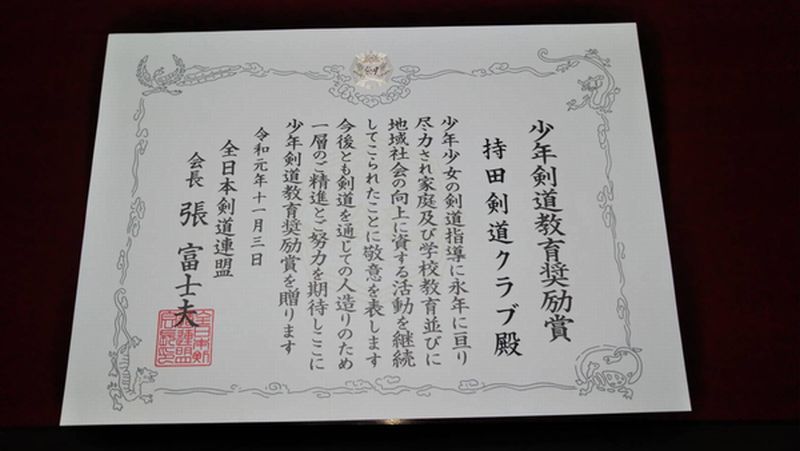 少年剣道教育奨励賞
持田剣道クラブ殿
少年少女の剣道指導に永年に亘り
尽力され家庭及び学校教育並びに
地域社会の向上に資する活動を継続
してこられたことに敬意を表します
今後とも剣道を通じての人造りのため
一層のご精進とご努力を期待しここに
少年剣道教育奨励賞を贈ります
令和元年十一月三日
全日本剣道連盟
会長 張富士夫
全日本剣
道連盟
会長印